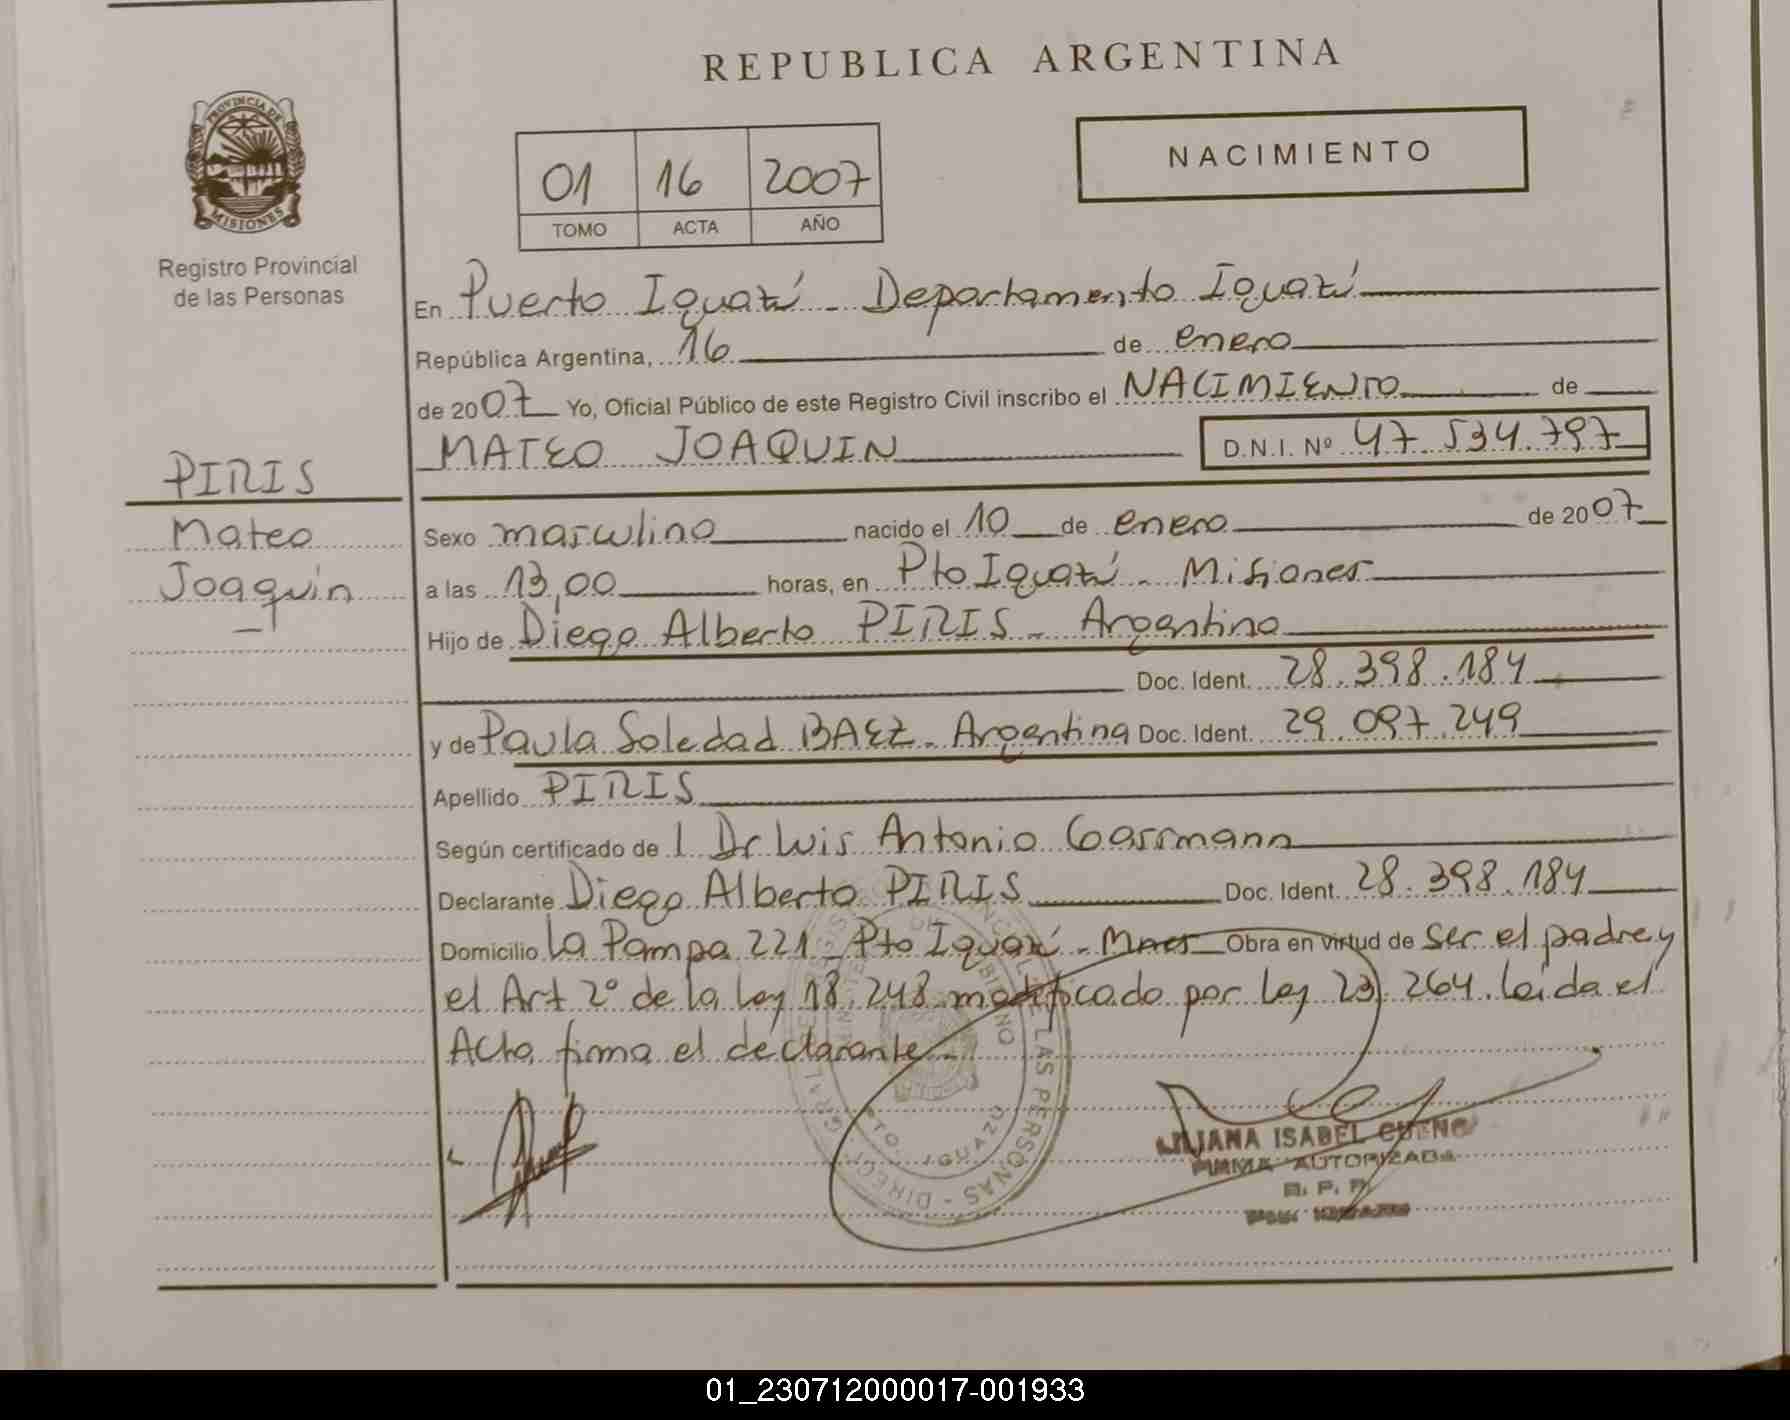 REPUBLICA ARGENTINA
PROVINCIA DE
MISIONES
Registro Provincial
de las Personas
01 16 2007
TOMO ACTA AÑO
NACIMIENTO
En Puerto Iguazú - Departamento Iguazú
República Argentina, 16 de enero
de 2007 Yo, Oficial Público de este Registro Civil inscribo el NACIMIENTO de
MATEO JOAQUIN D.N.I. Nº 47.534.797
PIRIS
Mateo
Joaquín
Sexo masculino nacido el 10 de enero de 2007
a las 13,00 horas, en Pto Iguazú - Misiones
Hijo de Diego Alberto PIRIS - Argentino
Doc. Ident. 28.398.184
y de Paula Soledad BAEZ - Argentina Doc. Ident. 29.097.249
Apellido PIRIS
Según certificado de l Dr Luis Antonio Gassmann
Declarante Diego Alberto PIRIS Doc. Ident. 28.398.184
Domicilio La Pampa 221 - Pto Iguazú - Mnes Obra en virtud de ser el padre y
el Art 2º de la Ley 18.248 modificado por Ley 23.264. Leida el
Acta firma el declarante -
LAS PERSONAS - DIRECC
PTO. IGUAZU
LILIANA ISABEL
FIRMA AUTORIZADA
R. P. P.
01_230712000017-001933